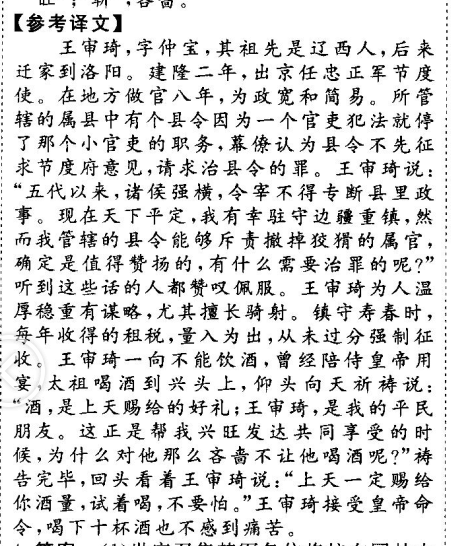 【参考译文】
王审琦,字仲宝,其祖先是辽西人,后来
迁家到洛阳。建隆二年,出京任忠正军节度
使。在地方做官八年,为政宽和简易。所管
辖的属县中有个县令因为一个官吏犯法就停
了那个小官吏的职务,幕僚认为县令不先征
求节度府意见,请求治县令的罪。王审琦说:
“五代以来,诸侯强横,令宰不得专断县里政
事。现在天下平定,我有幸驻守边疆重镇,然
而我管辖的县令能够斥责撤掉狡猾的属官,
确定是值得赞扬的,有什么需要治罪的呢?”
听到这些话的人都赞叹佩服。王审琦为人温
厚稳重有谋略,尤其擅长骑射。镇守寿春时,
每年收得的租税,量入为出,从未过分强制征
收。王审琦一向不能饮酒,曾经陪侍皇帝用
宴,太祖喝酒到兴头上,仰头向天祈祷说:
“酒,是上天赐给的好礼;王审琦,是我的平民
朋友。这正是帮我兴旺发达共同享受的时
候,为什么对他那么吝啬不让他喝酒呢?”祷
告完毕,回头看着王审琦说:“上天一定赐给
你酒量,试着喝,不要怕。”王审琦接受皇帝命
令,喝下十杯酒也不感到痛苦。